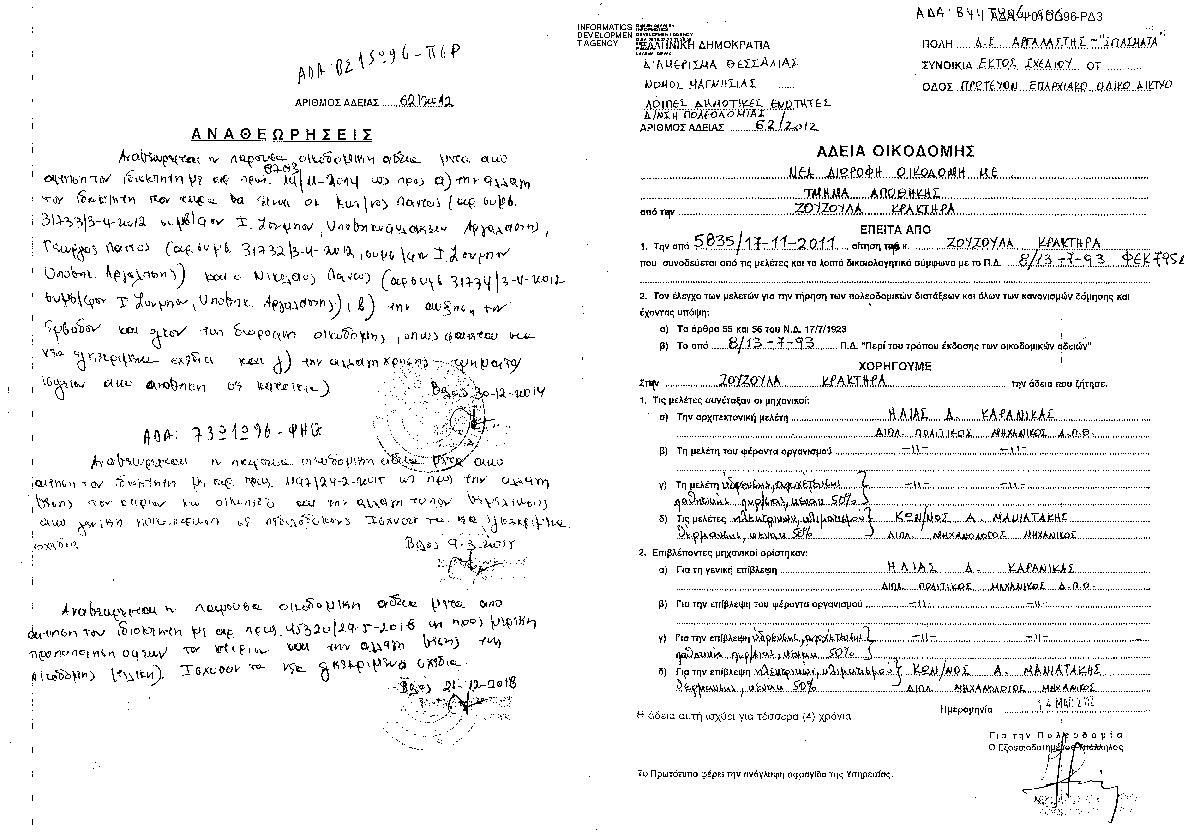 ΑΡΙΘΜΟΣ ΑΔΕΙΑΣ 62/2012
ΑΝΑΘΕΩΡΗΣΕΙΣ
Αναθεωρείται η παρούσα οικοδομική άδεια μετά από
αίτηση του ιδιοκτήτη με αρ. πρωτ. 14/11-2014 ως προς α) την αλλαγή
του ιδιοκτήτη που τώρα θα είναι οι Κων/νος Παπάς (αρ. συμβ.
31733/3-4-2012 συμβ/φου Ι. Σούμπου, Υποθηκοφυλακείου Αργαλαστής),
Γεώργιος Παπάς (αρ. συμβ. 31732/3-4-2012, συμβ/φου Ι. Σούμπου
Υποθηκ. Αργαλαστής) και ο Νικόλαος Παπάς (αρ. συμβ 31734/3-4-2012
συμβ/φου Ι Σούμπου, Υποθηκ. Αργαλαστής), β) την αύξηση του
εμβαδού και όγκου της διώροφης οικοδομής, όπως φαίνεται στα
νέα εγκεκριμένα σχέδια και γ) την αλλαγή χρήσης τμήματος
ισογείου από αποθήκη σε κατοικία)
Βόλος 30-12-2014
Αναθεωρείται η παρούσα οικοδομική άδεια μετά από
αίτηση του ιδιοκτήτη με αρ. πρωτ. 1197/24-2-2015 ως προς την αλλαγή
θέσης του κτιρίου στο οικόπεδο και την αλλαγή τύπου θεμελίωσης
από γενική κοιτόστρωση σε πεδιλοδοκούς Ισχύουν τα νέα εγκεκριμένα
σχέδια
Βόλος 9-3-2015
Αναθεωρείται η παρούσα οικοδομική άδεια μετά από
αίτηση του ιδιοκτήτη με αρ. πρωτ. 45320/29-5-2018 ως προς μερική
τροποποίηση όψεων του κτιρίου και την αλλαγή θέσης της
οικοδομής. Ισχύουν τα νέα εγκεκριμένα σχέδια.
Βόλος 21-12-2018
INFORMATICS
DEVELOPMEN
T AGENCY
ΕΛΛΗΝΙΚΗ ΔΗΜΟΚΡΑΤΙΑ
ΔΙΑΜΕΡΙΣΜΑ ΘΕΣΣΑΛΙΑΣ
ΝΟΜΟΣ ΜΑΓΝΗΣΙΑΣ
ΛΟΙΠΕΣ ΔΗΜΟΤΙΚΕΣ ΕΝΟΤΗΤΕΣ
Δ/ΝΣΗ ΠΟΛΕΟΔΟΜΙΑΣ
ΑΡΙΘΜΟΣ ΑΔΕΙΑΣ 62/2012
ΠΟΛΗ Δ.Ε ΑΡΓΑΛΑΣΤΗΣ - "ΣΠΑΣΜΑΤΑ"
ΣΥΝΟΙΚΙΑ ΕΚΤΟΣ ΣΧΕΔΙΟΥ ΟΤ
ΟΔΟΣ ΠΡΩΤΕΥΟΝ ΕΠΑΡΧΙΑΚΟ ΟΔΙΚΟ ΔΙΚΤΥΟ
ΑΔΕΙΑ ΟΙΚΟΔΟΜΗΣ
ΝΕΑ ΔΙΩΡΟΦΗ ΟΙΚΟΔΟΜΗ ΜΕ
ΤΜΗΜΑ ΑΠΟΘΗΚΗΣ
από την ΖΟΥΖΟΥΛΑ ΚΡΑΚΤΗΡΑ
ΕΠΕΙΤΑ ΑΠΟ
1. Την από 5835/17-11-2011 αίτηση της κ. ΖΟΥΖΟΥΛΑ ΚΡΑΚΤΗΡΑ
που συνοδεύεται από τις μελέτες και τα λοιπά δικαιολογητικά σύμφωνα με το Π.Δ. 8/13-7-93 ΦΕΚ795Δ
2. Τον έλεγχο των μελετών για την τήρηση των πολεοδομικών διατάξεων και όλων των κανονισμών δόμησης και
έχοντας υπόψη:
α) Τα άρθρα 55 και 56 του Ν.Δ. 17/7/1923
β) Το από 8/13-7-93 Π.Δ. "Περί του τρόπου έκδοσης των οικοδομικών αδειών"
ΧΟΡΗΓΟΥΜΕ
Στην ΖΟΥΖΟΥΛΑ ΚΡΑΚΤΗΡΑ την άδεια που ζήτησε.
1. Τις μελέτες συνέταξαν οι μηχανικοί:
α) Την αρχιτεκτονική μελέτη ΗΛΙΑΣ Δ. ΚΑΡΑΝΙΚΑΣ
ΔΙΠΛ. ΠΟΛΙΤΙΚΟΣ ΜΗΧΑΝΙΚΟΣ Α.Π.Θ.
β) Τη μελέτη του φέροντα οργανισμού -||- -||-
γ) Τη μελέτη ύδρευσης, αποχέτευσης -||- -||-
παθητικής πυρ/σίας, αερίου 50%
δ) Τις μελέτες ηλεκτρικών, κλιματισμού ΚΩΝ/ΝΟΣ Α. ΜΑΝΙΑΤΑΚΗΣ
θέρμανσης, αερίου 50% ΔΙΠΛ. ΜΗΧΑΝΟΛΟΓΟΣ ΜΗΧΑΝΙΚΟΣ
2. Επιβλέποντες μηχανικοί ορίστηκαν:
α) Για τη γενική επίβλεψη ΗΛΙΑΣ Δ. ΚΑΡΑΝΙΚΑΣ
ΔΙΠΛ. ΠΟΛΙΤΙΚΟΣ ΜΗΧΑΝΙΚΟΣ Α.Π.Θ.
β) Για την επίβλεψη του φέροντα οργανισμού -||- -||-
γ) Για την επίβλεψη ύδρευσης, αποχέτευσης -||- -||-
παθητικής πυρ/σίας, αερίου 50%
δ) Για την επίβλεψη ηλεκτρικών, κλιματισμού ΚΩΝ/ΝΟΣ Α. ΜΑΝΙΑΤΑΚΗΣ
θέρμανσης, αερίου 50% ΔΙΠΛ. ΜΗΧΑΝΟΛΟΓΟΣ ΜΗΧΑΝΙΚΟΣ
Ημερομηνία
Η άδεια αυτή ισχύει για τέσσερα (4) χρόνια
Για την Πολεοδομία
Ο Εξουσιοδοτημένος Υπάλληλος
Το Πρωτότυπο φέρει την ανάγλυφη σφραγίδα της Υπηρεσίας.